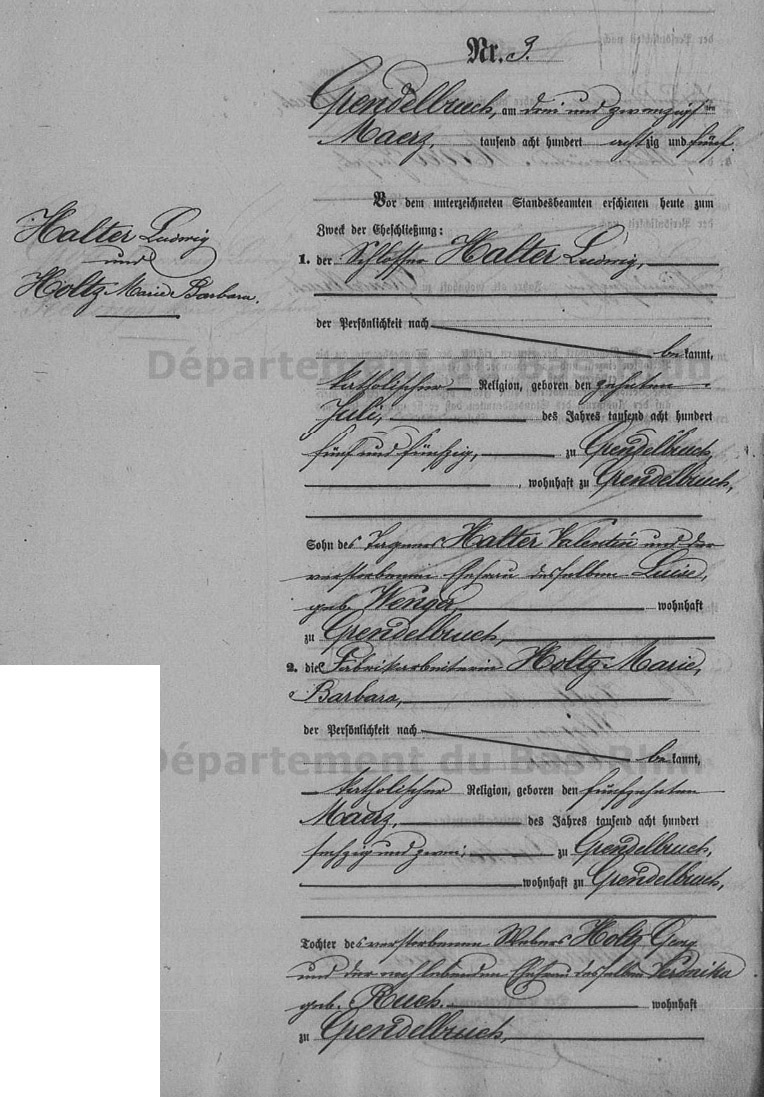 Nr. 3.
Grendelbruch, am drei und zwanzigsten
Maerz, tausend acht hundert achtzig und fünf.
Halter Ludwig
und
Holtz Marie Barbara.
Vor dem unterzeichneten Standesbeamten erschienen heute zum
Zweck der Eheschließung:
1. der Schlosser Halter Ludwig,
der Persönlichkeit nach
bekannt,
katholischer Religion, geboren den zehnten
Juli, des Jahres tausend acht hundert
fünf und fünfzig, zu Grendelbruch,
, wohnhaft zu Grendelbruch,
Sohn des Tagners Halter Valentin und der
verstorbenen Ehefrau desselben Luise,
geb. Wenger, wohnhaft
zu Grendelbruch,
2. die Fabrikarbeiterin Holtz Marie,
Barbara,
der Persönlichkeit nach
bekannt,
katholischer Religion, geboren den fünfzehnten
Maerz, des Jahres tausend acht hundert
sechzig und zwei, zu Grendelbruch,
wohnhaft zu Grendelbruch,
Tochter des verstorbenen Webers Holtz Georg
und der nachlebenden Ehefrau desselben Veronika
geb. Ruch. wohnhaft
zu Grendelbruch,
Département du Bas-Rhin
Département du Bas-Rhin